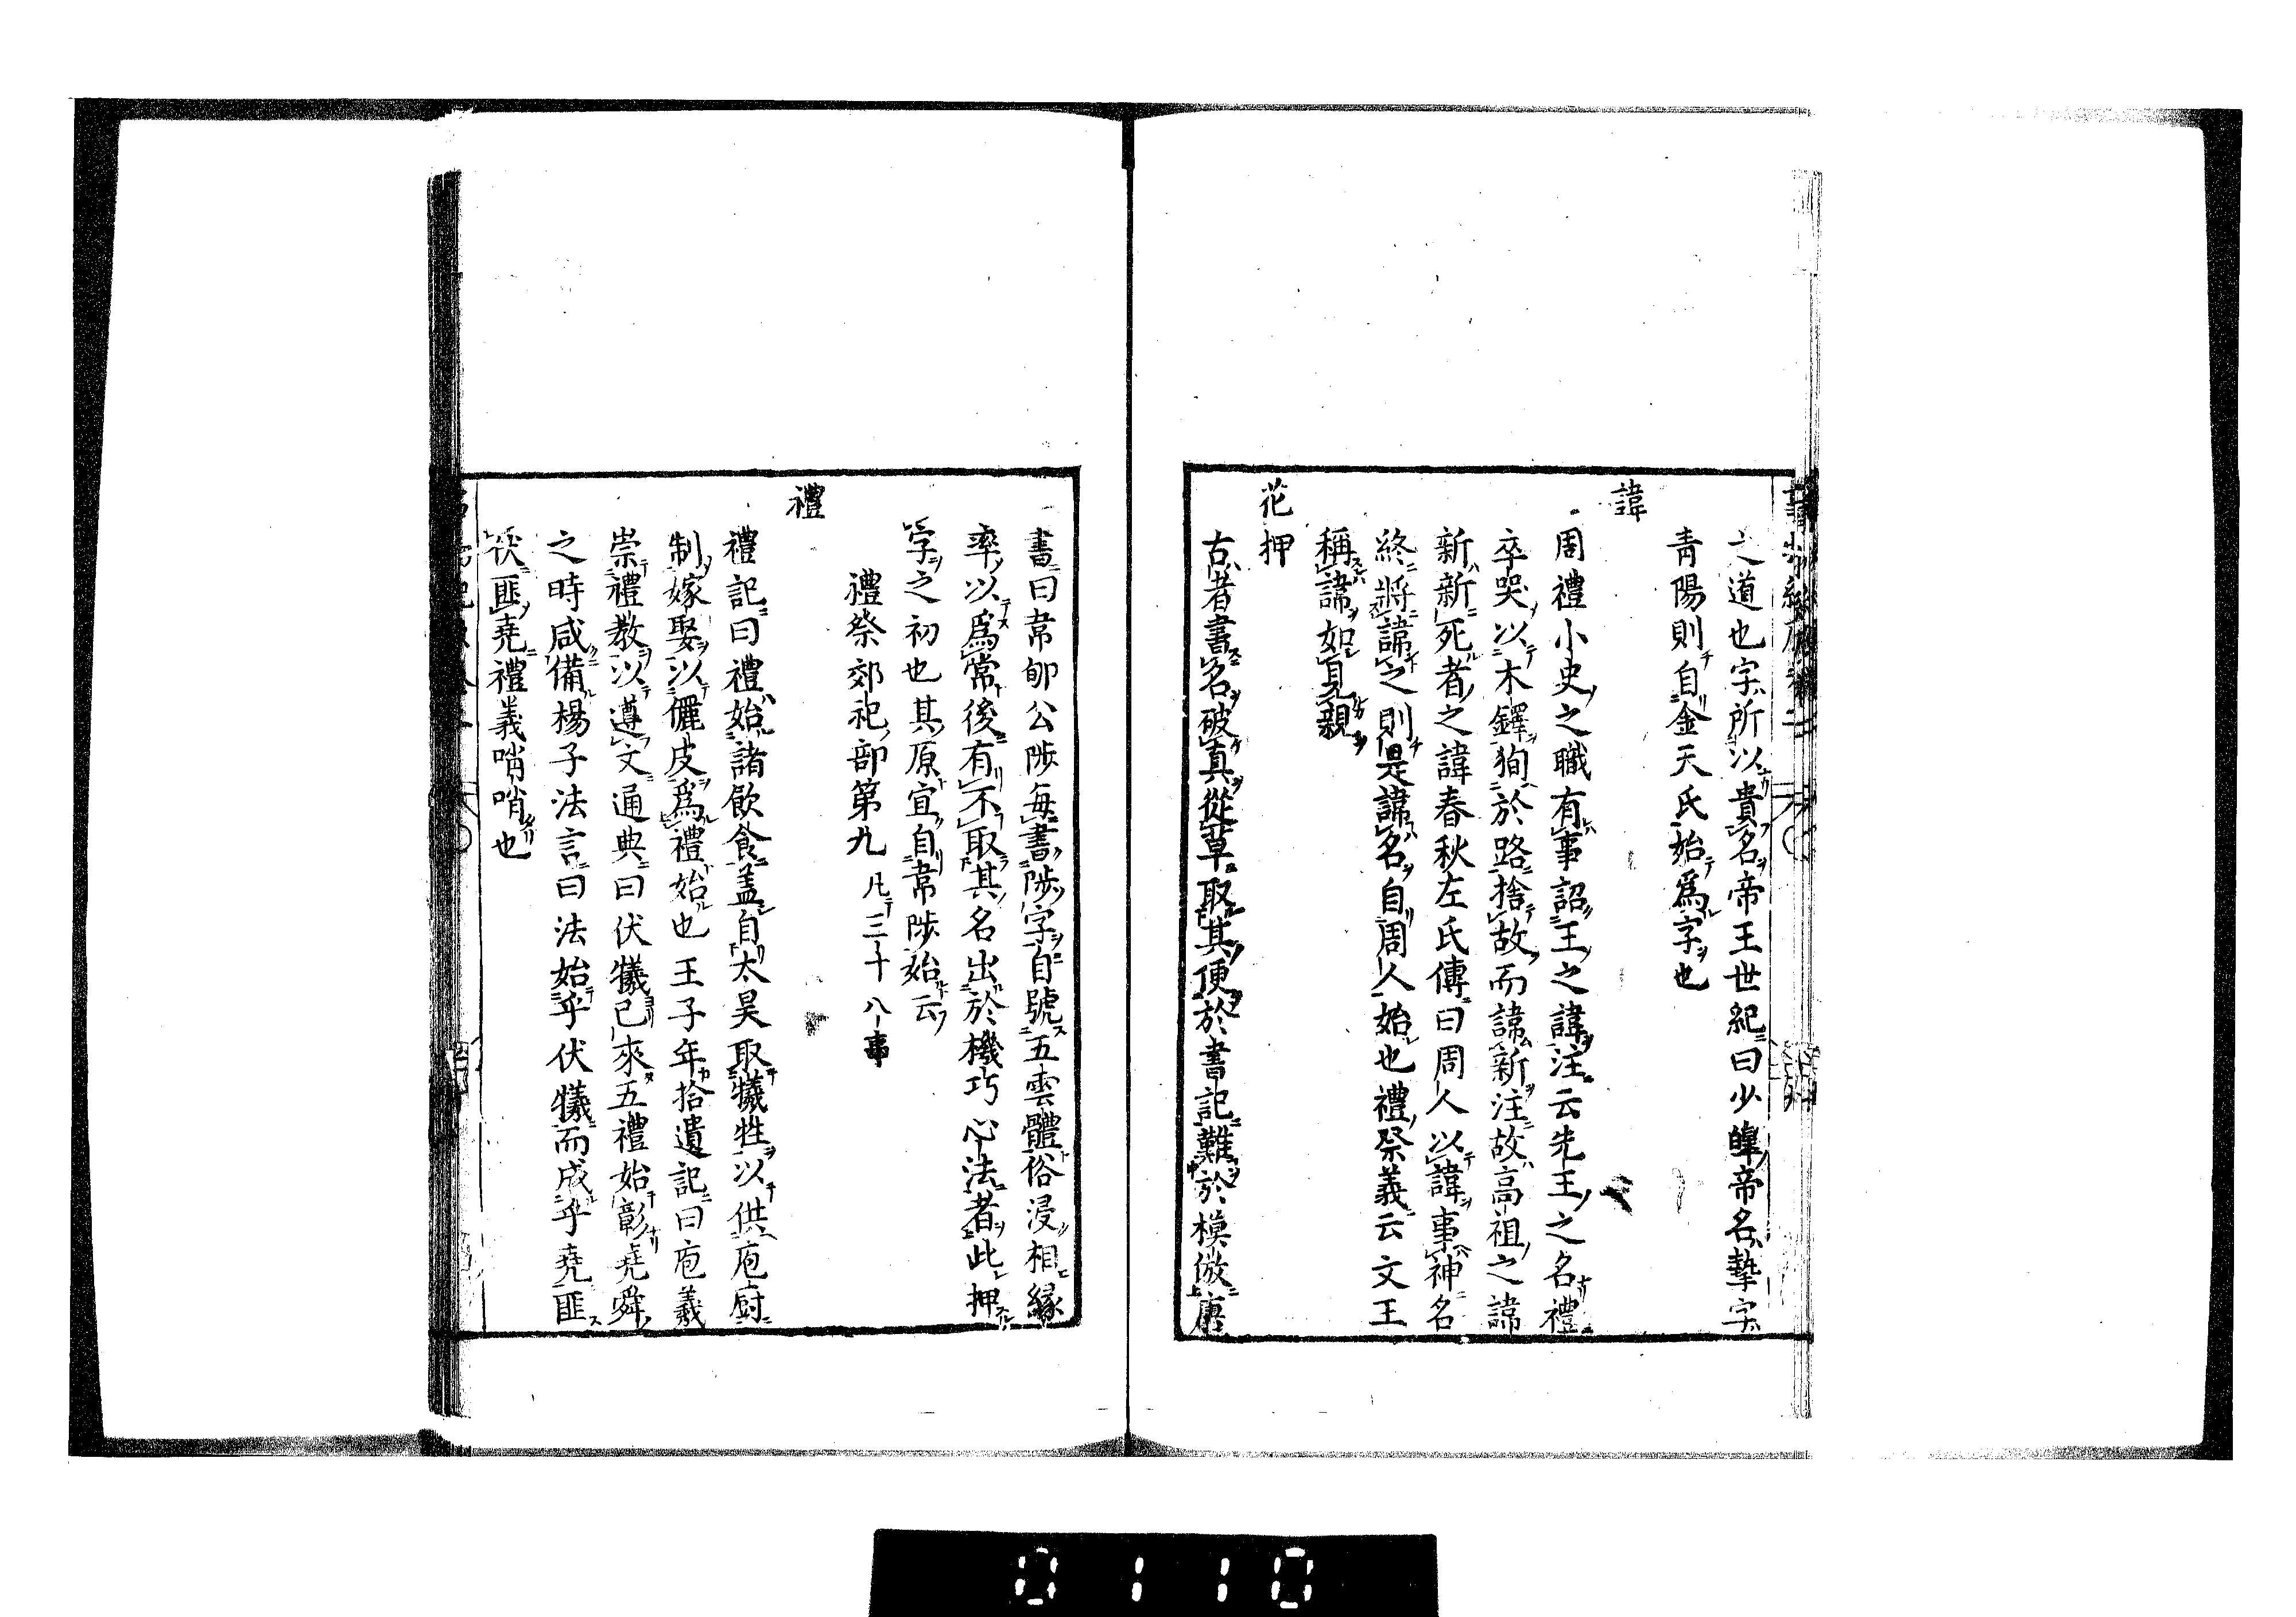 之道也字所以貴名帝王世紀曰少皡帝名摯字
青陽則自金天氏始爲字也
諱
周禮小史之職有事詔王之諱注云先王之名禮
卒哭以木鐸狥於路捨故而諱新注故高祖之諱
新新死者之諱春秋左氏傳曰周人以諱事神名
終將諱之則是諱名自周人始也禮祭義云文王
稱諱如見親
花押
古者書名破真從草取其便於書記難於模倣唐
書曰韋郇公陟每書陟字自號五雲體俗浸相緣
率以爲常後有不取其名出於機巧心法者此押
字之初也其原宜自韋陟始云
禮祭郊祀部第九 凡三十八事
禮
禮記曰禮始諸飲食盖自太昊取犧牲以供庖厨
制嫁娶以儷皮爲禮始也王子年拾遺記曰庖羲
崇禮教以遵文通典曰伏犧已來五禮始彰堯舜
之時咸備楊子法言曰法始乎伏犧而成乎堯匪
伏匪堯禮義哨哨也
0110